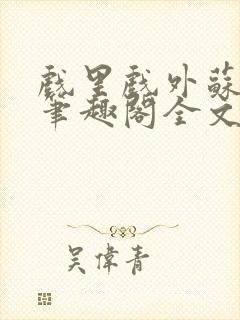 戲里戲外蘇
筆趣閣全文
吳偉青